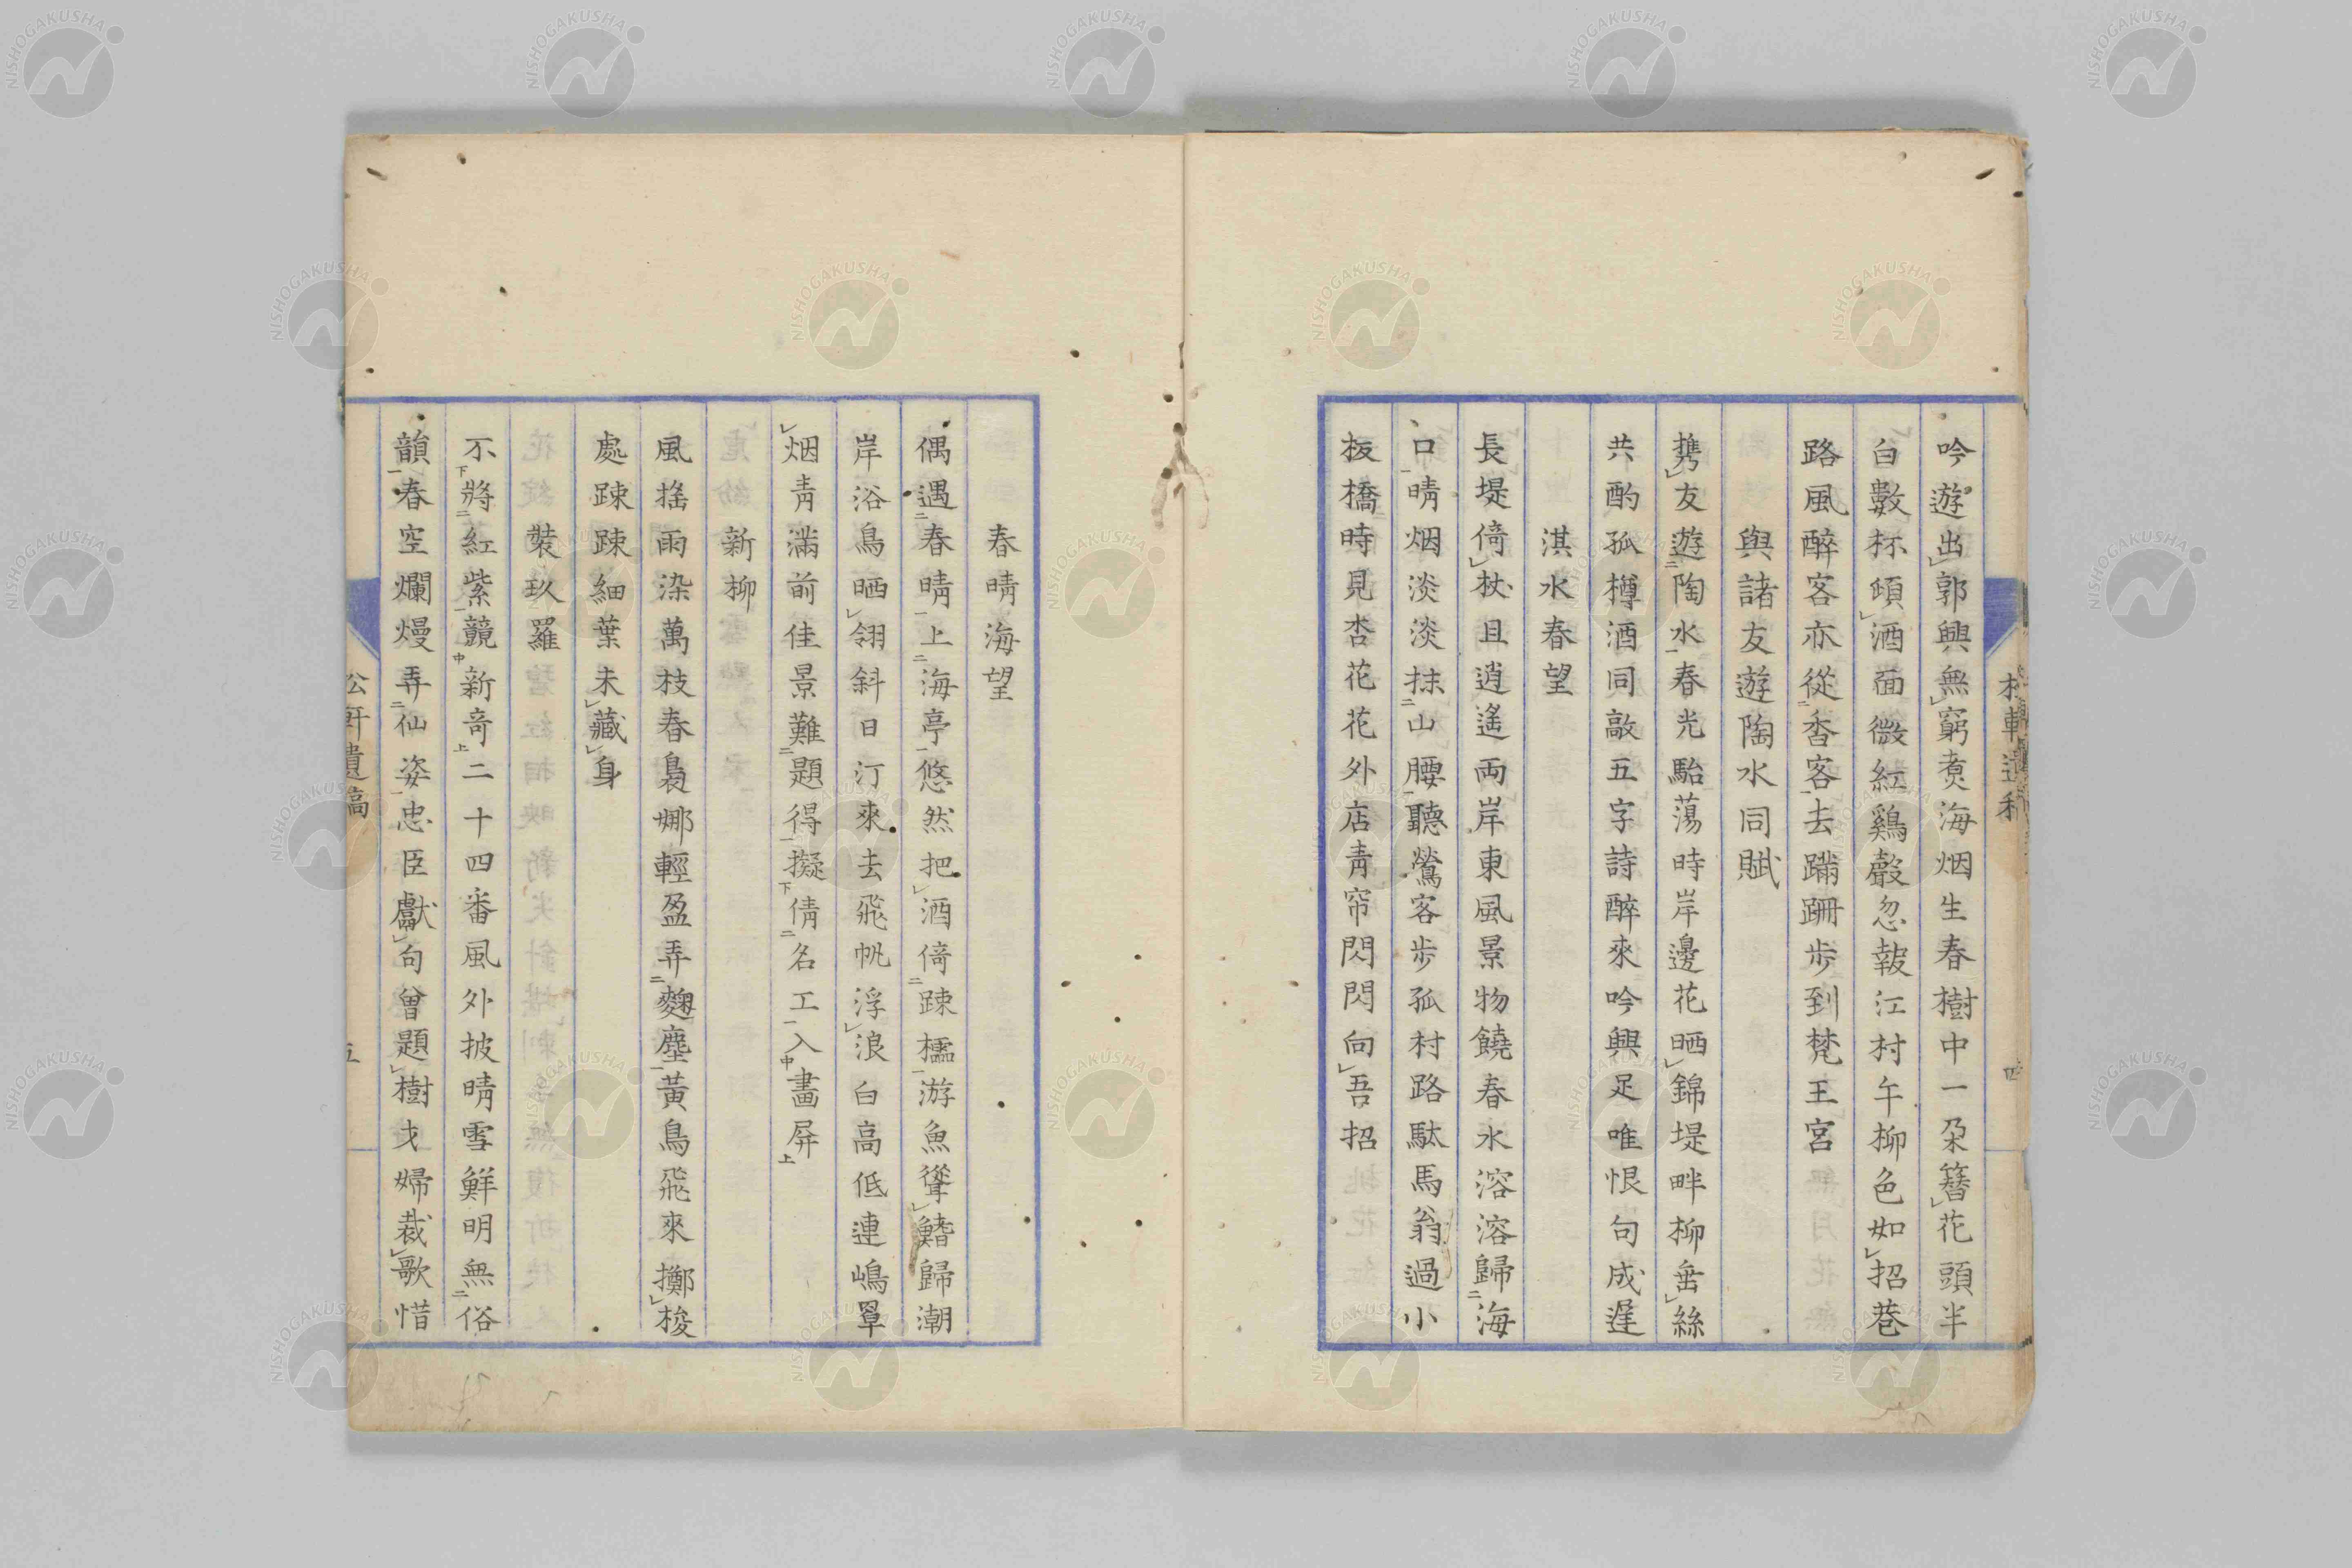 吟遊出郭興無窮煮海烟生春樹中一朶簪花頭半
白數杯傾酒面微紅鷄聲忽報江村午柳色如招巷
路風醉客亦從香客去蹣跚歩到梵王宮
與諸友遊陶水同賦
携友遊陶水春光駘蕩時岸邊花晒錦堤畔柳垂絲
共酌孤樽酒同敲五字詩醉來吟興足唯恨句成遅
淇水春望
長堤倚杖且逍遙両岸東風景物饒春水溶溶歸海
口晴烟淡淡抹山腰聽鶯客歩孤村路駄馬翁過小
板橋時見杏花花外店青帘閃閃向吾招
四
春晴海望
偶遇春晴上海亭悠然把酒倚踈櫺游魚聳鰭歸潮
岸浴鳥晒翎斜日汀來去飛帆浮浪白高低連嶋罩
烟青滿前佳景難題得擬倩名工入畵屏
新柳
風搖雨染萬枝春裊娜輕盈弄麹塵黃鳥飛來擲梭
處踈踈細葉未藏身
裝玖羅
不將紅紫競新奇二十四番風外披晴雪鮮明無俗
韻春空爛熳弄仙姿忠臣獻句曾題樹才婦裁歌惜
遺稿
五
NISHOGAKUSHA